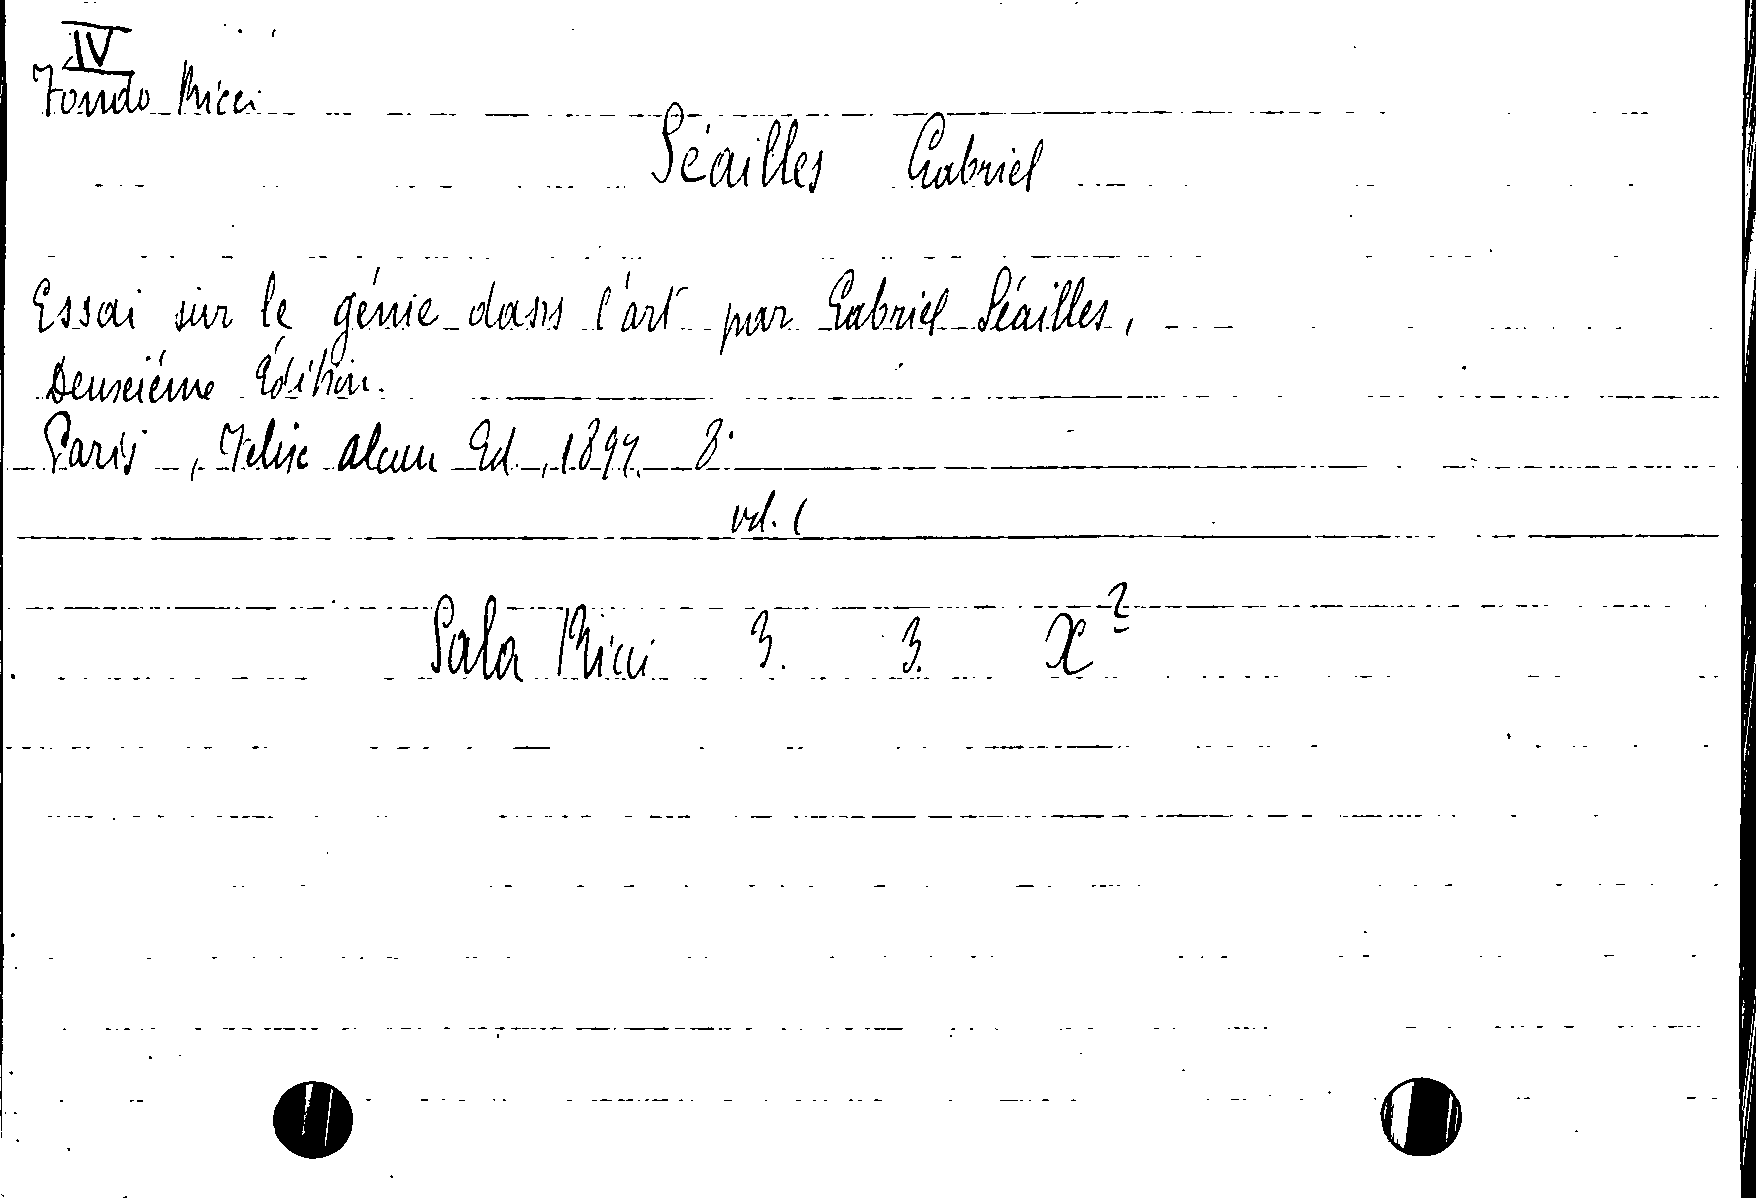 IV
Fondo Ricci
Séailles Gabriel
Essai sur le génie dans l'art par Gabriel Séailles,
Deuxième Édition.
Paris, Felix Alcan Ed., 1897. 8°
vol. 1
Sala Ricci 3. 3. X²